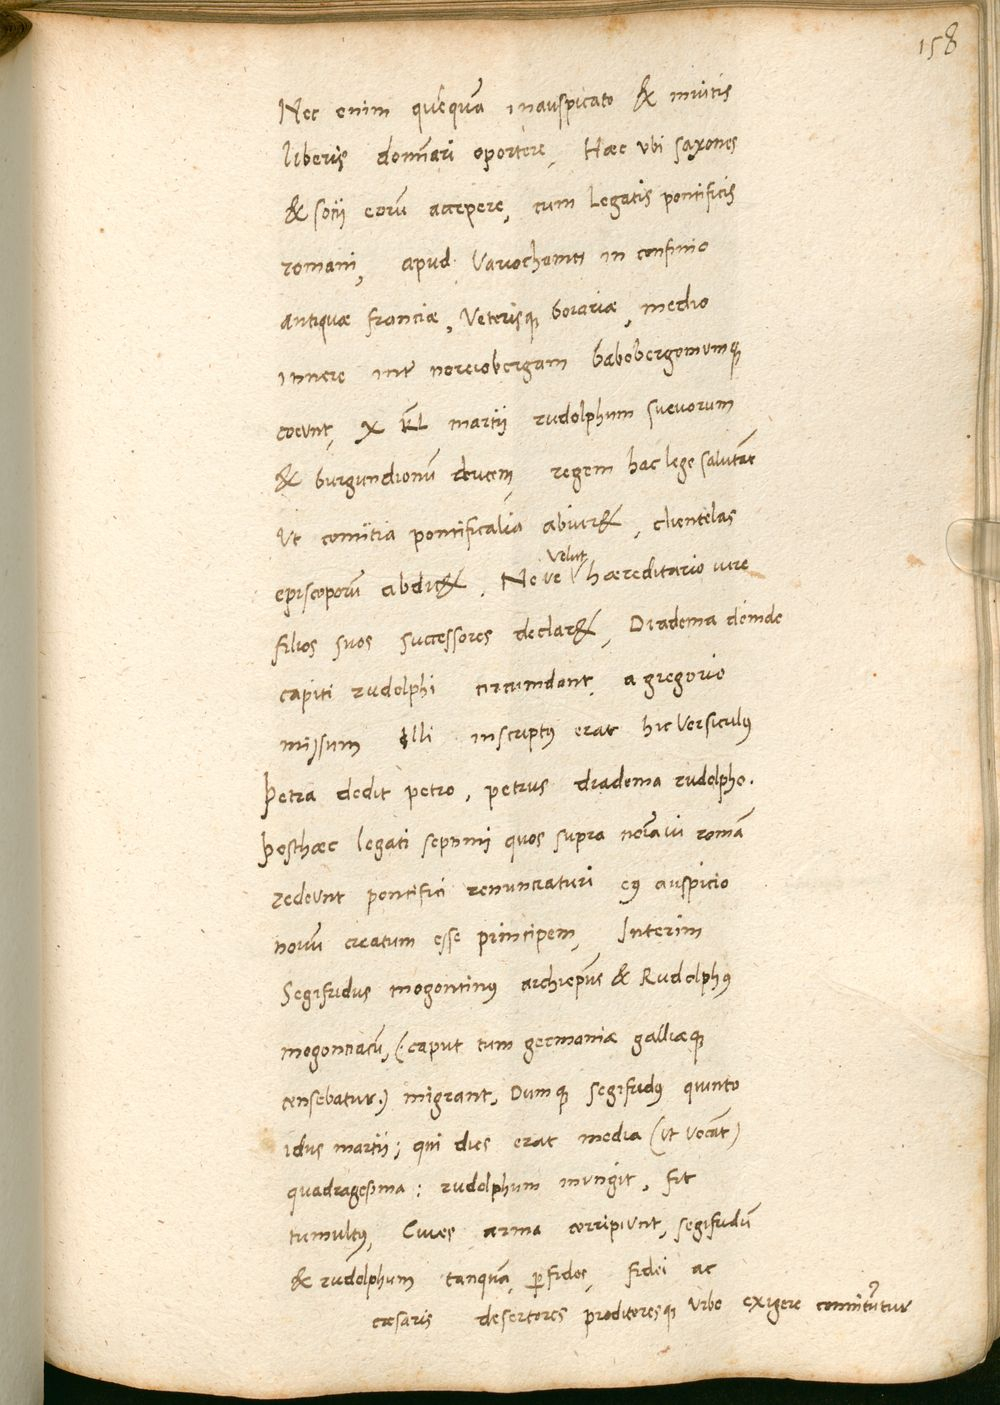 158
Nec enim quēquā inauspicato & inuitis
liberis domīari oportere, Haec vbi saxones
& socij eorū accepere, cum Legatis pontificis
romani, apud Variochemū in confinio
antiquae franciae, Veterisq boiariae, medio
itinere inter noreiobergam babobergomumq
coeunt, X KL martij rudolphum sueuorum
& burgundionū ducem, regem hac lege salutāt
Ut comitia pontificalia abiur&, clientelas
episcoporū abdic&. Neve velut haereditario iure
filios suos successores declar&, Diadema deinde
capiti rudolphi circumdant, a gregorio
missum Illi inscriptus erat hic versiculus
Petra dedit petro, petrus diadema rudolpho.
Posthaec legati septimij quos supra notaui romā
redeunt pontifici renunciaturi eius auspicio
nouū creatum esse principem, Interim
Segifridus mogontinus archiepūs & Rudolphus
mogontiacū, (caput tum germaniae galliaeq
censebatur.) migrant, Dumq segifridus quinto
idus martij; qui dies erat media (ut vocāt)
quadragesima: rudolphum inungit, fit
tumultus, Ciues arma corripiunt, segifridū
& rudolphum tanquā perfidos, fidei ac
caesaris desertores proditoresq vrbe exigere connitūtur